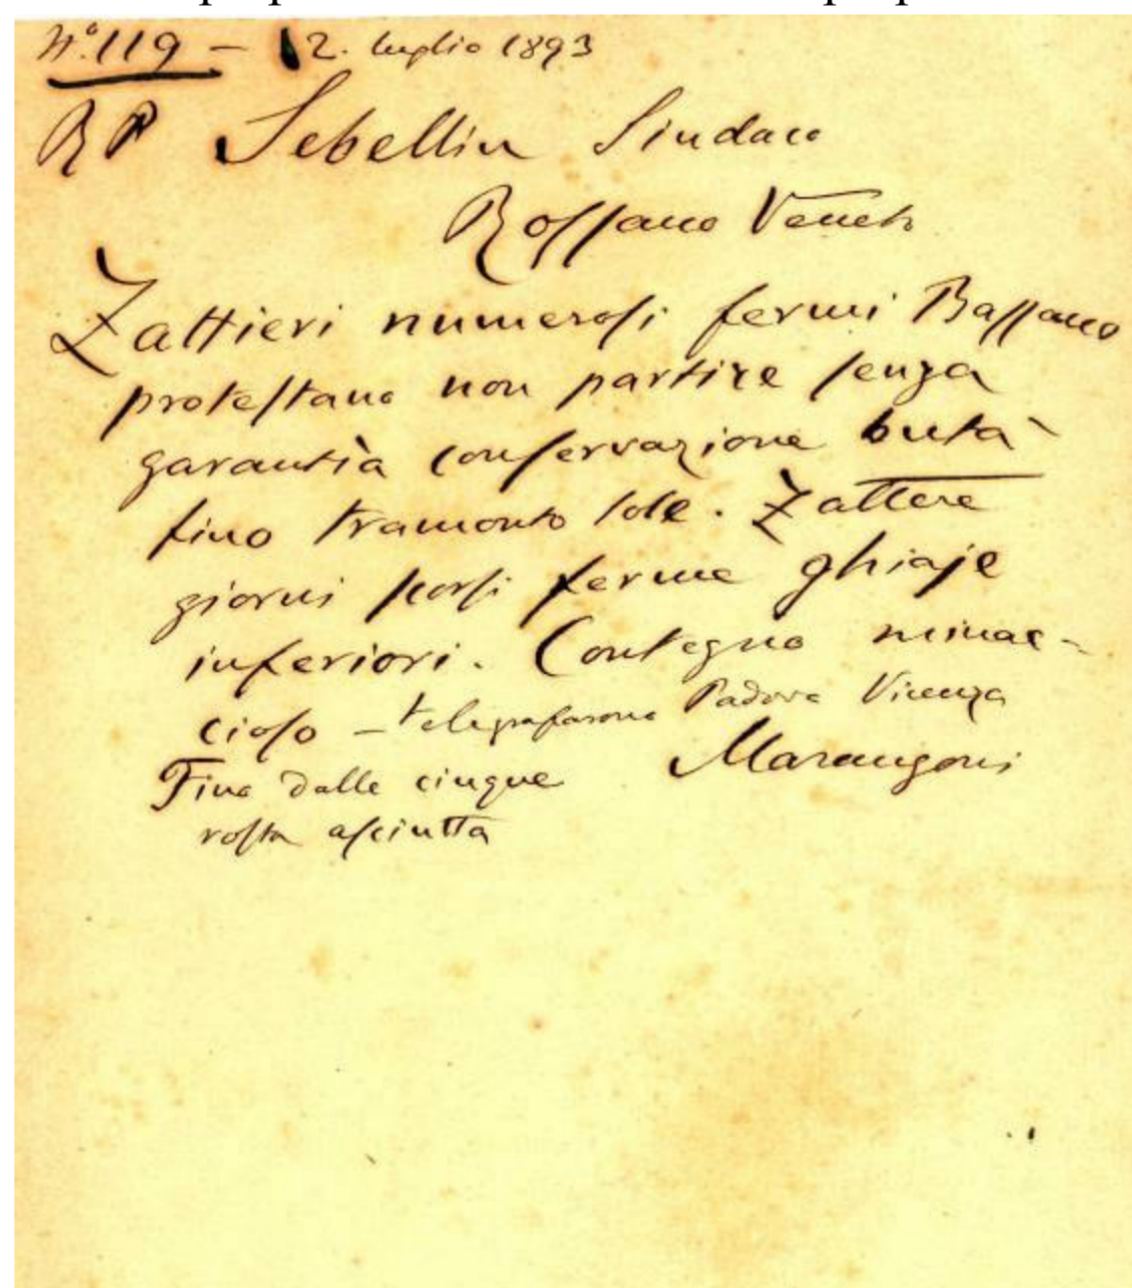 N.° 119 - 2. luglio 1893
RP Sebellin Sindaco
Rossano Veneto
Zattieri numerosi fermi Bassano
protestano non partire senza
garantìa conservazione butà
fino tramonto sole. Zattere
giorni scorsi ferme ghiaje
inferiori. Contegno minac-
cioso - telegrafarono Padova Vicenza
Marangoni
Fino dalle cinque
rosta asciutta